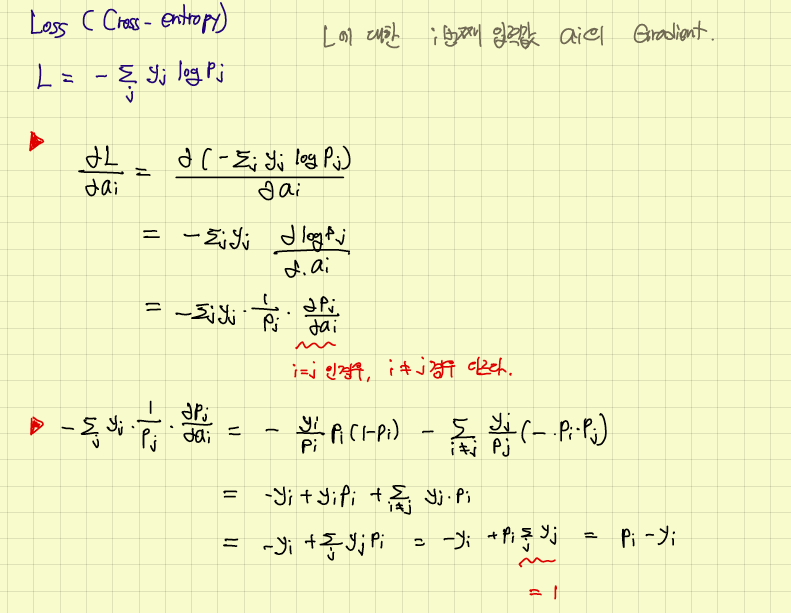 Loss ( Cross - entropy)
L에 대한 i번째 입력값 ai의 Gradient.
L = - Σj yj log Pj
∂L/∂ai = ∂(-Σj yj log Pj)/∂ai
= -Σj yj ∂log Pj/∂.ai
= -Σj yj · 1/Pj · ∂Pj/∂ai
i=j 인경우, i≠j 경우 다르다.
-Σj yj · 1/Pj · ∂Pj/∂ai = - yi/Pi Pi(1-Pi) - Σi≠j yj/Pj (-·Pi·Pj)
= -yi + yiPi + Σi≠j yj·Pi
= -yi + Σj yjPi = -yi + Pi Σj yj = Pi - yi
= 1